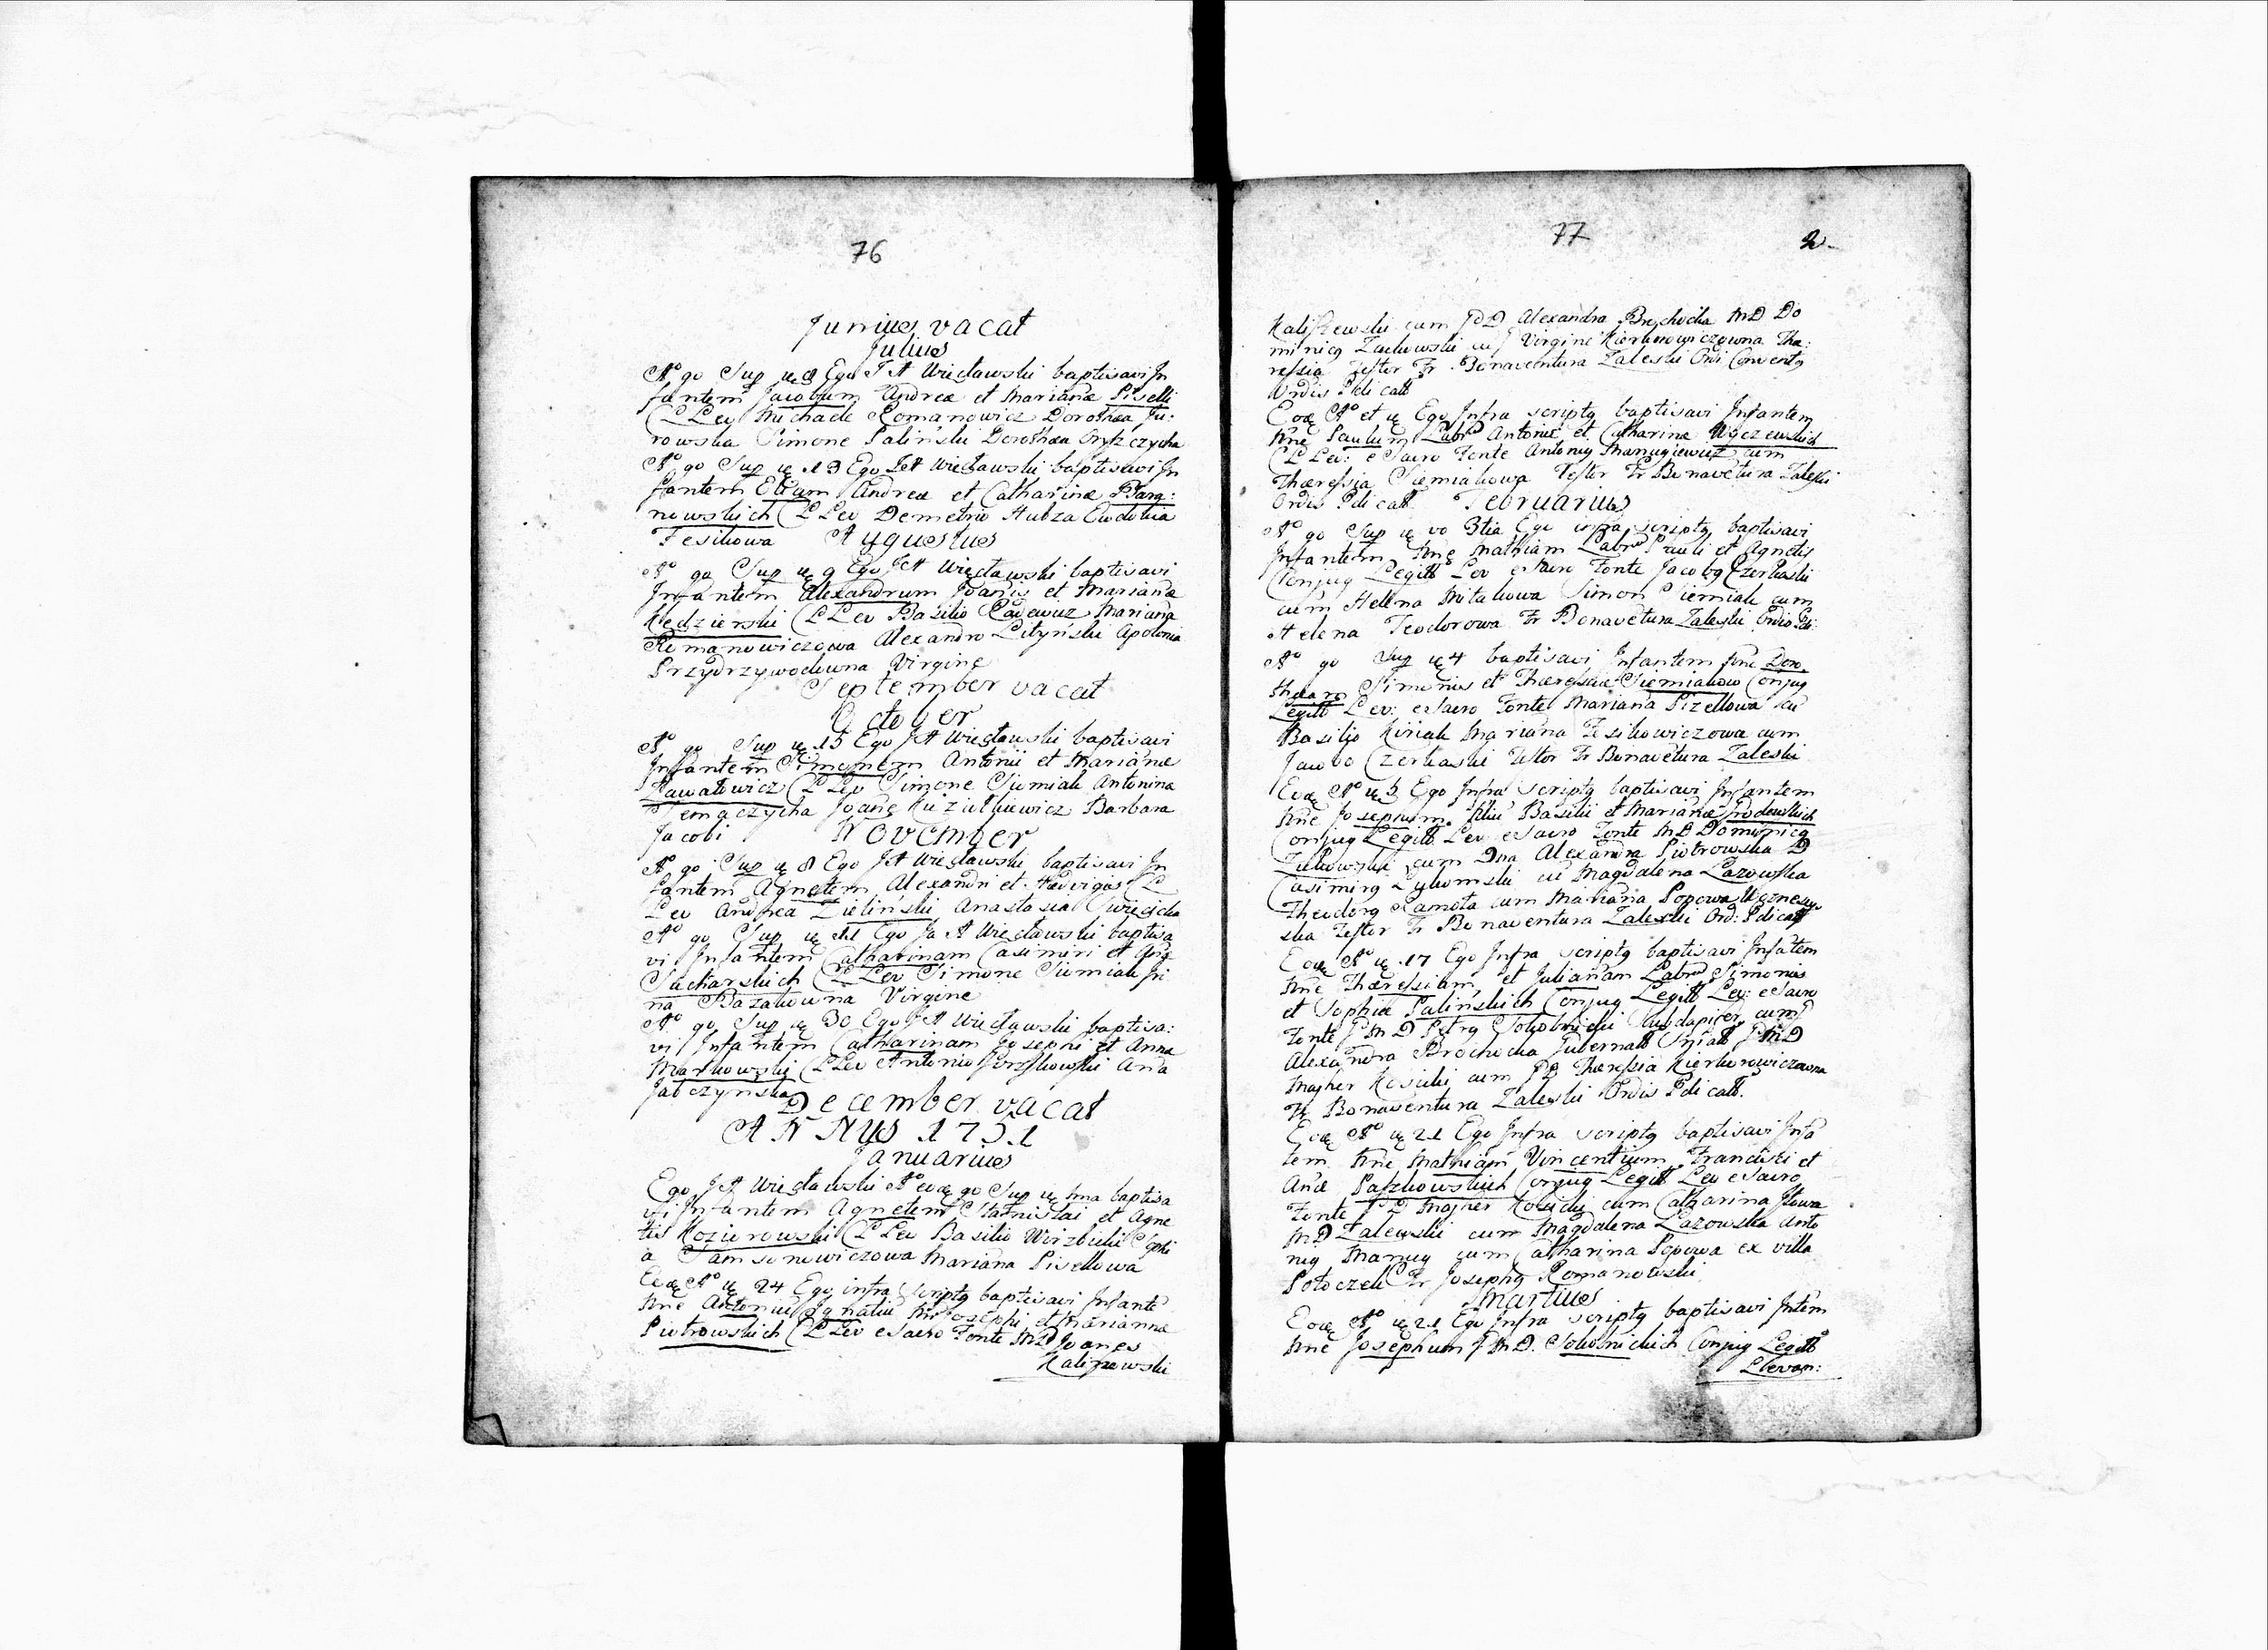 76
Junius vacat
Julius
Ao qo Sup ue 8 Ego J A Więcławski baptisavi In
fantem Jacobum Andreæ et Marianæ Piselli
C L Lev Michaele Romanowicz Dorothea Ju:
rowska Simone Palinski Dorothea
Ao qo Sup ue 13 Ego J A Więcławski baptisavi In
fantem Andreæ et Catharinæ
nowskich C L Lev Demetrio Hubza Eudokia
Fesikowa Augustus
Ao qo Sup ue 9 Ego J A Więcławski baptisavi
Infantem Alexandrum Joanis et Marianæ
Kędzierski C L Lev Basilio Mariana
Romanowiczowa Alexandro Lityński Apolonia
Przydrzywodowna Virgine
September vacat
October
Ao qo Sup ue 15 Ego J A Więcławski baptisavi
Infantem Simonem Antonii et Marianæ
Zawałowicz C L Lev Simone Siemiak Antonina
Joane Barbara
Jacobi November
Ao qo Sup ue 8 Ego J A Więcławski baptisavi In
fantem Agnetem Alexandri et Hedvigis C L
Lev Andrea Zieliński Anastasia Swięcicka
Ao qo Sup ue 11 Ego Ja A Więcławski baptisa
vi Infantem Catharinam Casimiri et
Sucharskich C L Lev Simone Siemiak Iri
na Bazakowna Virgine
Ao qo Sup ue 30 Ego J A Więcławski baptisa:
vi Infantem Catharinam Josephi et Anna
Markowski C L Lev Antonio Ana
Jabczynska
December vacat
ANNUS 1751
Januarius
Ego J A Więcławski Ao eoe qo Sup ue 1ma baptisa
vi Infantem Agnetem Stanislai et Agne
tis Kozierowski C L Lev Basilio Wirzbicki Sophi
a Samsonowiczowa Mariana Pisellowa
Eoe Ao ue 24 Ego infra scriptq baptisavi Infante
Nne Antoniu Ignatiu Josephi et Marianna
Piotrowskich C L Lev e Sacro Fonte M D Joanes
Kaliszewski
77 2
Kaliszewski cum Alexandra Brochocka M D Do
minicq Zukowski cu Virgine Kierknowiczowna The:
ressia Testor Fr Bonaventura Zaleski Ordi Conventq
Ordis Pdicatt
Eoe Ao et ue Ego Infra scriptq baptisavi Infantem
Nne Paulum Labr Antonii et Catharina
C L Lev: e Sacro Fonte Antoniq Manugiewicz cum
Theressia Siemiakowa Testor Fr Bonavetura Zaleski
Ordis Pdicatt Februarius
Ao qo Sup ue vo 3tia Ego infra scriptq baptisavi
Infantem Nne Mathiam Labr Pauli et Agnetis
Conjug Legitt Lev e Sacro Fonte Jacobq Czerkaski
cum Helena Mitukowa Simon Siemiak cum
Helena Teodorowa Fr Bonavetura Zaleski Ordis Pdi:
Ao qo Sup ue 4 baptisavi Infantem Nne Doro
theam Simonis et Theressiæ Siemiakow Conjug
Legitt Lev: e Sacro Fonte Mariana Pizellowa cu
Basilio Kiriak Mariana Fesikowiczowa cum
Jacobo Czerkaski Testor Fr Bonavetura Zaleski
Eoe Ao ue 5 Ego Infra scriptq baptisavi Infantem
Nne Josephum filiu Basilii et Marianæ
Conjug Legitt Lev e Sacro Fonte M D Dominicq
Zukowski cum Dna Alexandra Piotrowska D
Casimirq cu Magdalena Lazowska
Theodorq Ramota cum Mariana Popowa
ska Testor Fr Bonaventura Zaleski Ord: Pdicatt
Eoe Ao ue 17 Ego Infra scriptq baptisavi Infatem
Nne Theressiam et Julianam Labr Simonis
et Sophiæ Palińskich Conjug Legitt Lev: e Sacro
Fonte J M D Petrq Sokolnicki Subdapifer cum
Alexandra Brochocka Gubernatt J M D
Majher Kosicki cum J D Theressia Kierknowiczowna
Fr Bonaventura Zaleski Ordis Pdicatt.
Eoe Ao ue 21 Ego Infra scriptq baptisavi Infa
tem Nne Mathiam Vincentium Francisci et
Anæ Paszkowskich Conjug Legitt Lev e Sacro
Fonte J D Majher Kosicki cum Catharina
M D Zalewski cum Magdalena Lazowska Anto
niq Manug cum Catharina Popowa ex villa
Potoczek Fr Josephq Romanowski
Martius
Eoe Ao ue 21 Ego Infra scriptq baptisavi Intem
Nne Josephum J M D. Sokolnickich Conjug Legitt
Llevan: